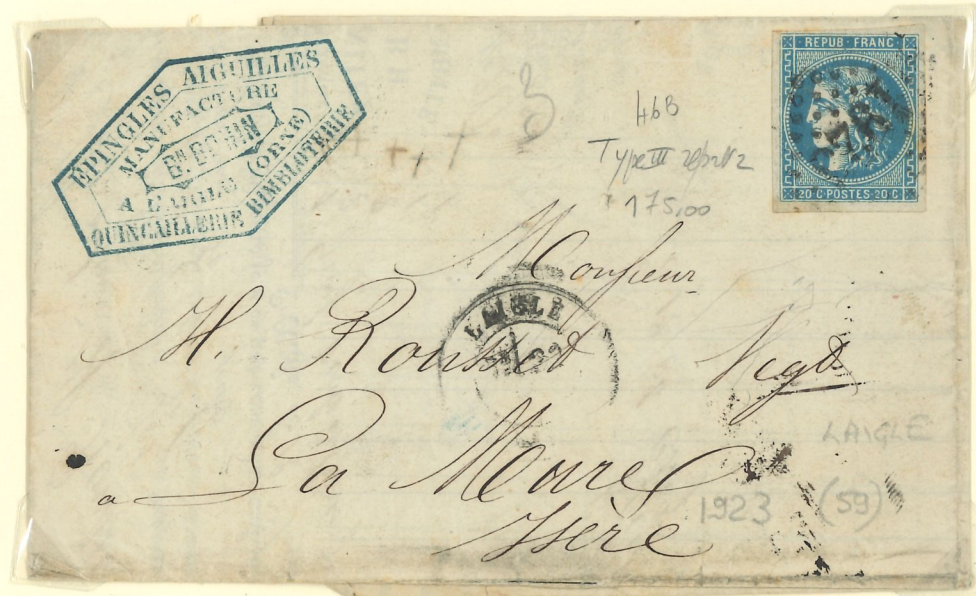 ÉPINGLES AIGUILLES
MANUFACTURE
Bin BOHIN
A L'AIGLE (ORNE)
QUINCAILLERIE BIMBLOTERIE
REPUB·FRANC
20·C·POSTES·20·C
3
46B
Type III
175,00
Monsieur
LAIGLE
22
H. Rousset Negt
La Mure
Isère
LAIGLE
1923 (59)